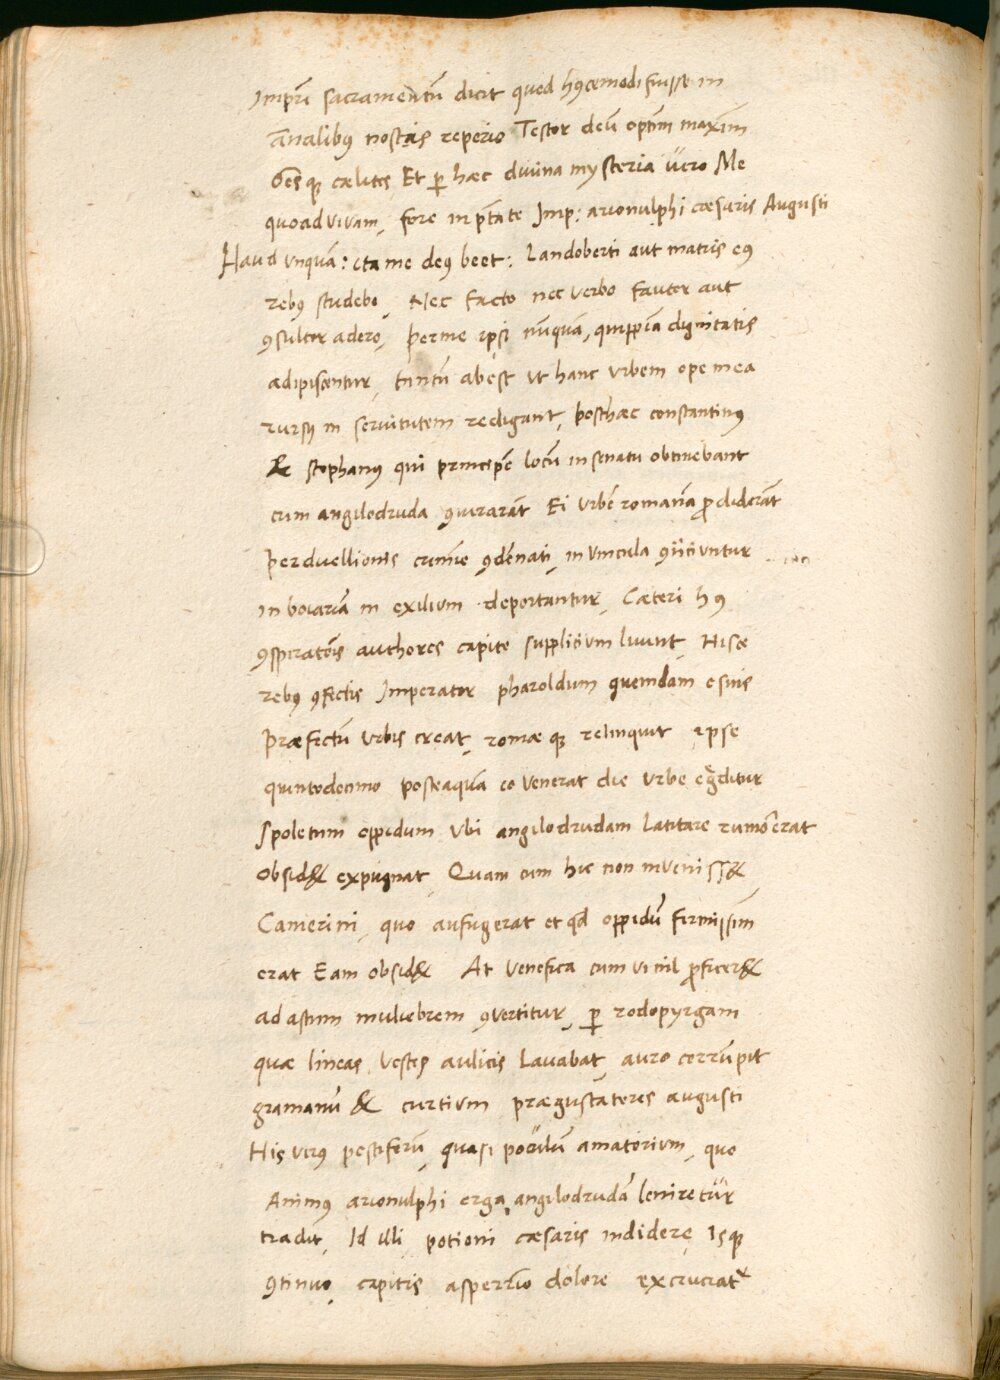 Imprī sacramentū dicit quod hꝯcemodi fuisse in
ānalibꝯ nostris reperio Testor deū optīm maxīm
Oēs qꝫ cælites Et ꝑ hæc diuina mysteria vero Me
quoad vivam, fore in ptāte Imp: arionulphi cæsaris Augusti
Haud vnquā: ita me deꝯ beet: Landoberti aut matris eꝯ
rebꝯ studebo, Nec facto nec verbo fautor aut
ꝯsultor adero, per me ipsi nūquā, quippiā dignitatis
adipiscentur, tantū abest vt hanc vrbem ope mea
rursꝯ in servitutem redigant, posthæc constantinꝯ
& stephanꝯ qui principē locū in senatu obtinebant
cum angilodruda ꝯiurarāt Ei vrbē romanā ꝓdiderāt
perduellionis crimīe ꝯdēnati, in vincula ꝯiiciuntur
in boiariā in exilium deportantur, Cæteri hꝯ
ꝯspiratōis authores capite supplitium luunt, Hisce
rebꝯ ꝯfectis Imperator pharoldum quemdam e suis
Præfectū vrbis creat, romæ qꝫ relinquit ipse
quintodecimo posteaquā eo venerat die vrbe egrēditur
Spoletum oppidum vbi angilodrudam latitare rumor erat
obsid& expugnat, Quam cum hic non inveniss&,
Camerini, quo aufugerat et qd oppidū firmissīm
erat Eam obsid& At venefica cum vi nil ꝓficer&
ad astum muliebrem ꝯvertitur, ꝑ rodopyrgam
quæ lineas vestes aulicis lavabat, auro corrūpit
gramanū & curtium prægustatores augusti
His virꝯ pestiferū, quasi poculū amatorium, quo
Animꝯ arionulphi erga angilodrudā leniretur
tradūt, Id illi potioni cæsaris indidere Isqꝫ
ꝯtinuo capitis asperrīo dolore excruciat